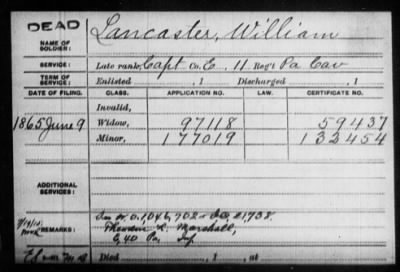 DEAD
NAME OF SOLDIER: Lancaster, William
SERVICE: Late rank, Capt Co. E, 11 Reg't Pa Cav
TERM OF SERVICE: Enlisted , 1 Discharged , 1
DATE OF FILING. CLASS. APPLICATION NO. LAW. CERTIFICATE NO.
Invalid,
1865 June 9 Widow, 97118 59437
Minor, 177019 132454
ADDITIONAL SERVICES:
W.O. 1046,702 21,738.
REMARKS: Theodore L. Marshall,
G, 40 Pa. Inf.
Died , 1 , at